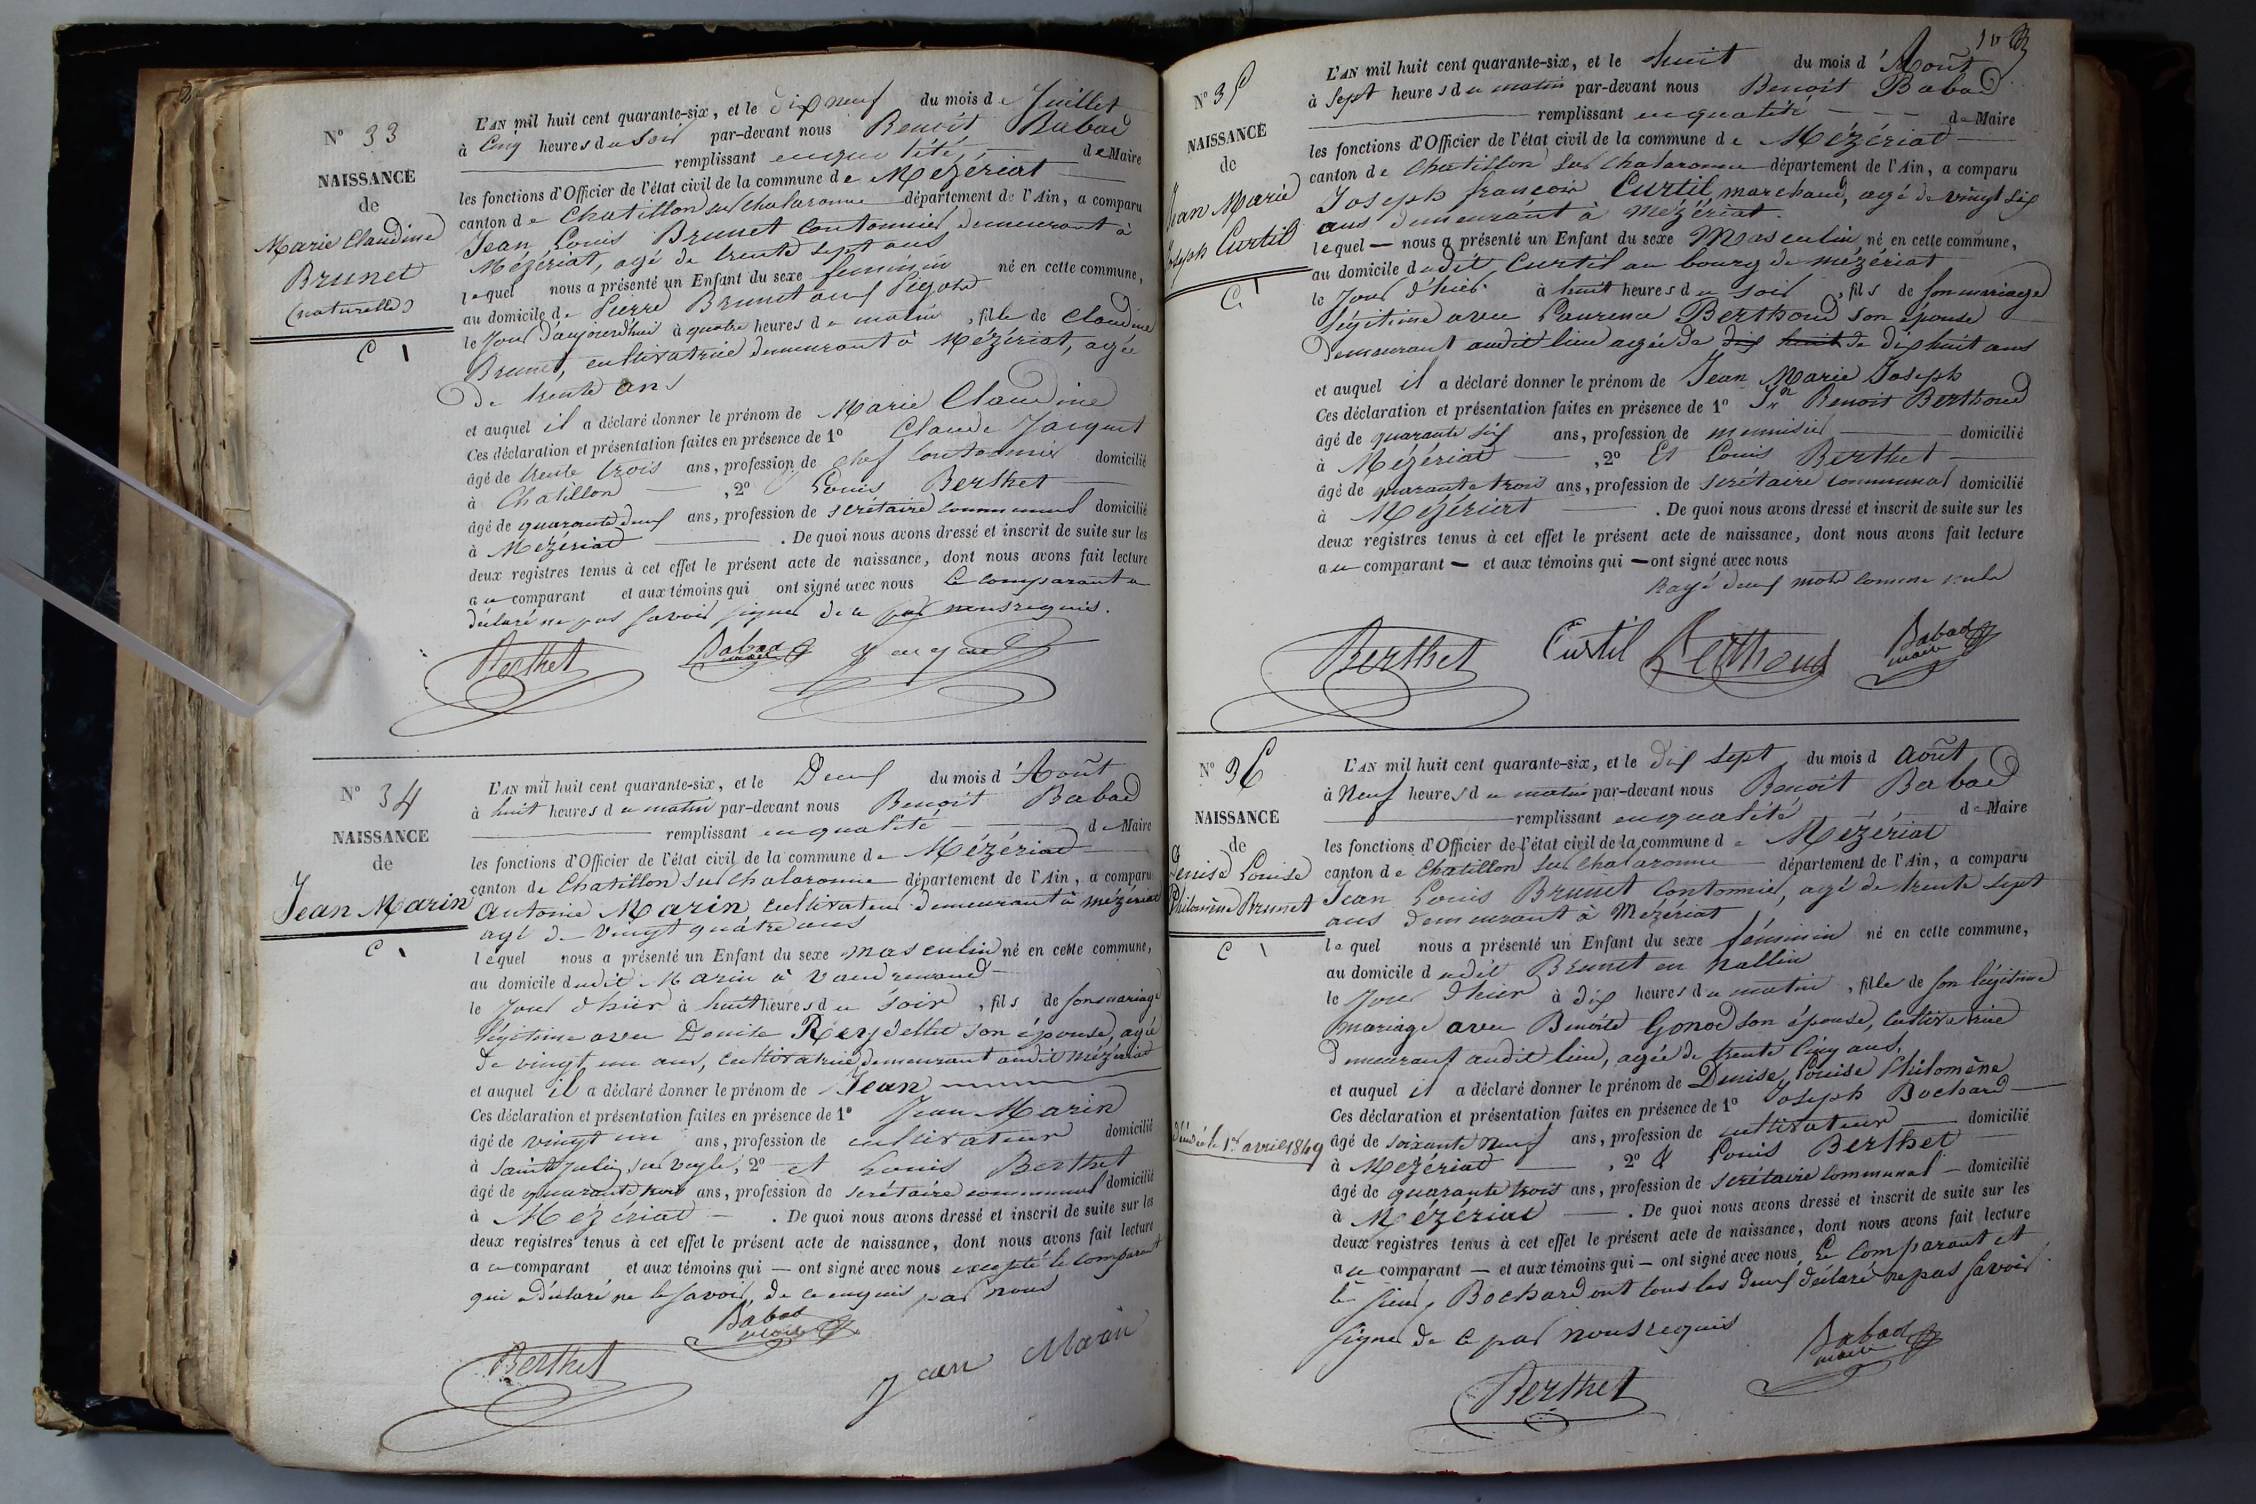 N° 33
NAISSANCE
de
Marie Claudine
Brunet
(naturelle)
C 1
L'AN mil huit cent quarante-six, et le dix neuf du mois de Juillet
à Cinq heures du soir par-devant nous Benoit Babad
remplissant en qualité de Maire
les fonctions d'Officier de l'état civil de la commune de Mézériat
canton de Chatillon sur Chalaronne département de l'Ain, a comparu
Jean Louis Brunet Contonnier, demeurant à
Mézériat, agé de trente sept ans
lequel nous a présenté un Enfant du sexe féminin né en cette commune,
au domicile de Pierre Brunet aux
le Jour d'aujourdhui à quatre heures de matin, fille de Claudine
Brunet, cultivatrice demeurant à Mézériat, agée
de trente ans
et auquel il a déclaré donner le prénom de Marie Claudine
Ces déclaration et présentation faites en présence de 1° Claude Jacquet
âgé de trente trois ans, profession de chef Contonnier domicilié
à Chatillon , 2° Louis Berthet
âgé de quarante deux ans, profession de secrétaire communal domicilié
à Mézériat . De quoi nous avons dressé et inscrit de suite sur les
deux registres tenus à cet effet le présent acte de naissance, dont nous avons fait lecture
au comparant et aux témoins qui ont signé avec nous le comparant a
déclaré ne pas savoir signer de ce par nous requis.
Berthet Babad maire Jacquet
N° 34
NAISSANCE
de
Jean Marin
C 1
L'AN mil huit cent quarante-six, et le Deux du mois d'Août
à huit heures du matin par-devant nous Benoit Babad
remplissant en qualité de Maire
les fonctions d'Officier de l'état civil de la commune de Mézériat
canton de Chatillon sur Chalaronne département de l'Ain, a comparu
Antoine Marin cultivateur demeurant à Mézériat
agé de vingt quatre ans
lequel nous a présenté un Enfant du sexe masculin né en cette commune,
au domicile dudit Marin à Vaurenaud
le Jour d'hier à huit heures du soir, fils de son mariage
légitime avec Denise Reydellet son épouse, agée
de vingt un ans, cultivatrice demeurant audit Mézériat
et auquel il a déclaré donner le prénom de Jean
Ces déclaration et présentation faites en présence de 1° Jean Marin
âgé de vingt un ans, profession de cultivateur domicilié
à Saint Julien sur Veyle, 2° et Louis Berthet
âgé de quarante trois ans, profession de secrétaire communal domicilié
à Mézériat . De quoi nous avons dressé et inscrit de suite sur les
deux registres tenus à cet effet le présent acte de naissance, dont nous avons fait lecture
au comparant et aux témoins qui — ont signé avec nous excepté le comparant
qui a déclaré ne le savoir, de ce enquis par nous
Berthet Babad maire Jean Marin
N° 35
NAISSANCE
de
Jean Marie
Joseph Curtil
C 1
L'AN mil huit cent quarante-six, et le huit du mois d'Août
à Sept heures du matin par-devant nous Benoit Babad
remplissant en qualité de Maire
les fonctions d'Officier de l'état civil de la commune de Mézériat
canton de Chatillon sur Chalaronne département de l'Ain, a comparu
Joseph françois Curtil, marchand, agé de vingt six
ans demeurant à Mézériat.
lequel — nous a présenté un Enfant du sexe Masculin né en cette commune,
au domicile dudit Curtil au bourg de Mézériat
le Jour d'hier à huit heures du soir, fils de son mariage
légitime avec Laurence Berthoud son épouse
demeurant audit lieu agée de dix huit de dix huit ans
et auquel il a déclaré donner le prénom de Jean Marie Joseph
Ces déclaration et présentation faites en présence de 1° Benoit Berthoud
âgé de quarante six ans, profession de menuisier domicilié
à Mézériat , 2° Et Louis Berthet
âgé de quarante trois ans, profession de secrétaire communal domicilié
à Mézériat . De quoi nous avons dressé et inscrit de suite sur les
deux registres tenus à cet effet le présent acte de naissance, dont nous avons fait lecture
au comparant — et aux témoins qui — ont signé avec nous
Rayé deux mots comme nuls
Berthet Curtil Berthoud Babad maire
N° 36
NAISSANCE
de
Denise Louise
Philomène Brunet
C 1
Décédée le 1er avril 1849
L'AN mil huit cent quarante-six, et le dix sept du mois d Août
à Neuf heures du matin par-devant nous Benoit Babad
remplissant en qualité de Maire
les fonctions d'Officier de l'état civil de la commune de Mézériat
canton de Chatillon sur Chalaronne département de l'Ain, a comparu
Jean Louis Brunet Contonnier, agé de trente sept
ans demeurant à Mézériat
lequel nous a présenté un Enfant du sexe féminin né en cette commune,
au domicile dudit Brunet en
le Jour d'hier à dix heures du matin, fille de son légitime
mariage avec Benoite Gonod son épouse, cultivatrice
demeurant audit lieu, agée de trente Cinq ans.
et auquel il a déclaré donner le prénom de Denise Louise Philomène
Ces déclaration et présentation faites en présence de 1° Joseph Bochard
âgé de soixante neuf ans, profession de cultivateur domicilié
à Mézériat , 2° & Louis Berthet
âgé de quarante trois ans, profession de secrétaire communal — domicilié
à Mézériat . De quoi nous avons dressé et inscrit de suite sur les
deux registres tenus à cet effet le présent acte de naissance, dont nous avons fait lecture
au comparant — et aux témoins qui — ont signé avec nous Le comparant et
le sieur Bochard ont tous les deux déclaré ne pas savoir
signer de ce par nous requis
Berthet Babad maire